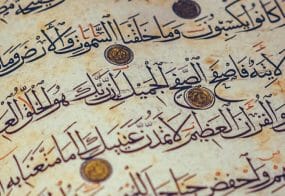 كَانُوا يَكْسِبُونَ وَمَا خَلَقْنَا السَّمٰوَاتِ وَالْأَرْضَ وَمَا
لَآتِيَةٌ فَاصْفَحِ الصَّفْحَ الْجَمِيلَ إِنَّ رَبَّكَ هُوَ الْخَلَّاقُ الْعَـ
وَالْقُرْآنَ الْعَظِيمَ لَا تَمُدَّنَّ عَيْنَيْكَ إِلَى مَا مَتَّعْنَا بِهِ
وَاخْفِضْ جَنَاحَكَ